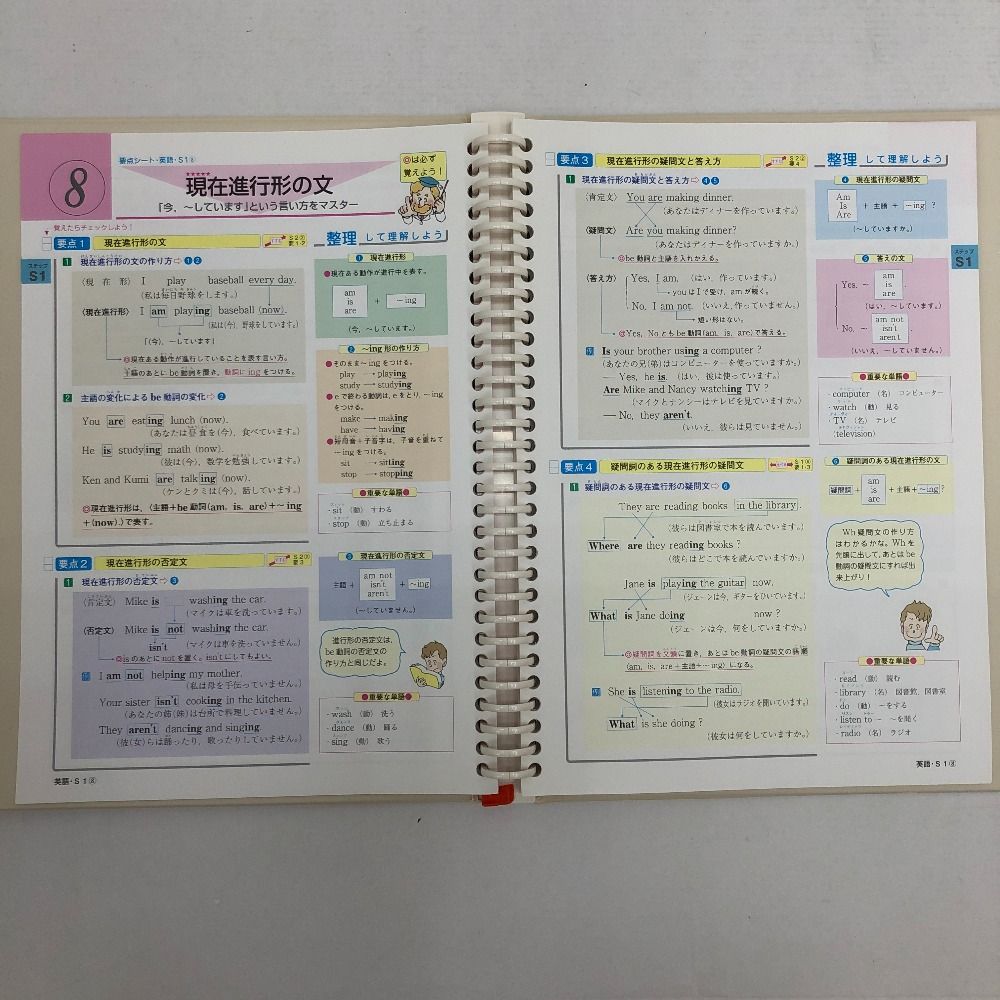 8
要点シート・英語・S1⑧
現在進行形の文
「今，～しています」という言い方をマスター
◎は必ず
覚えよう！
覚えたらチェックしよう！
要点1 現在進行形の文
整理 して理解しよう
ステップ
S1
1 現在進行形の文の作り方⇨❶❷
(現 在 形) I play baseball every day.
(私は毎日野球をします。)
(現在進行形) I am playing baseball (now).
(私は(今)，野球をしています。)
「(今)，～しています」
◎現在ある動作が進行していることを表す言い方。
主語のあとに be 動詞を置き，動詞に ing をつける。
2 主語の変化による be 動詞の変化⇨❷
You are eating lunch (now).
(あなたは昼食を(今)，食べています。)
He is studying math (now).
(彼は(今)，数学を勉強しています。)
Ken and Kumi are talking (now).
(ケンとクミは(今)，話しています。)
◎現在進行形は，〈主語+be 動詞(am, is, are)+～ing
+(now).〉で表す。
❶ 現在進行形
●現在ある動作が進行中を表す。
am
is
are
+ ～ing
(今，～しています。)
❷ ～ing 形の作り方
●そのまま～ing をつける。
play → playing
study → studying
●e で終わる動詞は，e をとり，～ing
をつける。
make → making
have → having
●短母音+子音字は，子音を重ねて
～ing をつける。
sit → sitting
stop → stopping
●重要な単語●
・sit (動) すわる
・stop (動) 立ち止まる
要点2 現在進行形の否定文
1 現在進行形の否定文⇨❸
(肯定文) Mike is washing the car.
(マイクは車を洗っています。)
(否定文) Mike is not washing the car.
isn't (マイクは車を洗っていません。)
◎is のあとに not を置く。isn't にしてもよい。
例 I am not helping my mother.
(私は母を手伝っていません。)
Your sister isn't cooking in the kitchen.
(あなたの姉(妹)は台所で料理していません。)
They aren't dancing and singing.
(彼(女)らは踊ったり，歌ったりしていません。)
❸ 現在進行形の否定文
主語 +
am not
isn't
aren't
+ ～ing
(～していません。)
進行形の否定文は，
be 動詞の否定文の
作り方と同じだよ。
●重要な単語●
・wash (動) 洗う
・dance (動) 踊る
・sing (動) 歌う
英語・S1⑧
要点3 現在進行形の疑問文と答え方
整理 して理解しよう
ステップ
S1
1 現在進行形の疑問文と答え方⇨❹❺
(肯定文) You are making dinner.
(あなたはディナーを作っています。)
(疑問文) Are you making dinner?
(あなたはディナーを作っていますか。)
◎be 動詞と主語を入れかえる。
(答え方) Yes, I am. (はい，作っています。)
you は I で受け，am が続く。
No, I am not. (いいえ，作っていません。)
短い形はない。
◎Yes, No とも be 動詞(am, is, are)で答える。
例 Is your brother using a computer ?
(あなたの兄(弟)はコンピューターを使っていますか。)
Yes, he is. (はい，彼は使っています。)
Are Mike and Nancy watching TV ?
(マイクとナンシーはテレビを見ていますか。)
— No, they aren't.
(いいえ，彼らは見ていません。)
❹ 現在進行形の疑問文
Am
Is
Are
+ 主語 + ～ing ?
(～していますか。)
❺ 答えの文
Yes, ～
am
is
are
.
(はい，～しています。)
No, ～
am not
isn't
aren't
.
(いいえ，～していません。)
●重要な単語●
・computer (名) コンピューター
・watch (動) 見る
・TV (名) テレビ
(television)
要点4 疑問詞のある現在進行形の疑問文
1 疑問詞のある現在進行形の疑問文⇨❻
They are reading books in the library.
(彼らは図書室で本を読んでいます。)
Where are they reading books ?
(彼らはどこで本を読んでいますか。)
Jane is playing the guitar now.
(ジェーンは今，ギターをひいています。)
What is Jane doing now ?
(ジェーンは今，何をしていますか。)
◎疑問詞を文頭に置き，あとは be 動詞の疑問文の語順
(am, is, are+主語+～ing) になる。
例 She is listening to the radio.
(彼女はラジオを聞いています。)
What is she doing ?
(彼女は何をしていますか。)
❻ 疑問詞のある現在進行形の文
疑問詞 +
am
is
are
+ 主語 + ～ing ?
Wh 疑問文の作り方
はわかるかな。Wh を
先頭に出して，あとは be
動詞の疑問文にすれば出
来上がり！
●重要な単語●
・read (動) 読む
・library (名) 図書館，図書室
・do (動) ～をする
・listen to ～ ～を聞く
・radio (名) ラジオ
英語・S1⑧